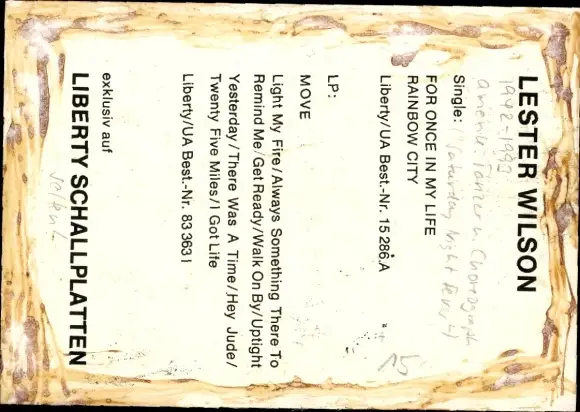 LESTER WILSON
1942-1993
amerik. Tänzer u. Choreograph
(Saturday Night Fever)
Single:
FOR ONCE IN MY LIFE
RAINBOW CITY
Liberty/UA Best.-Nr. 15 286 A
15
LP:
MOVE
Light My Fire/Always Something There To
Remind Me/Get Ready/Walk On By/Uptight
Yesterday/There Was A Time/Hey Jude/
Twenty Five Miles/I Got Life
Liberty/UA Best.-Nr. 83 363 I
exklusiv auf
LIBERTY SCHALLPLATTEN